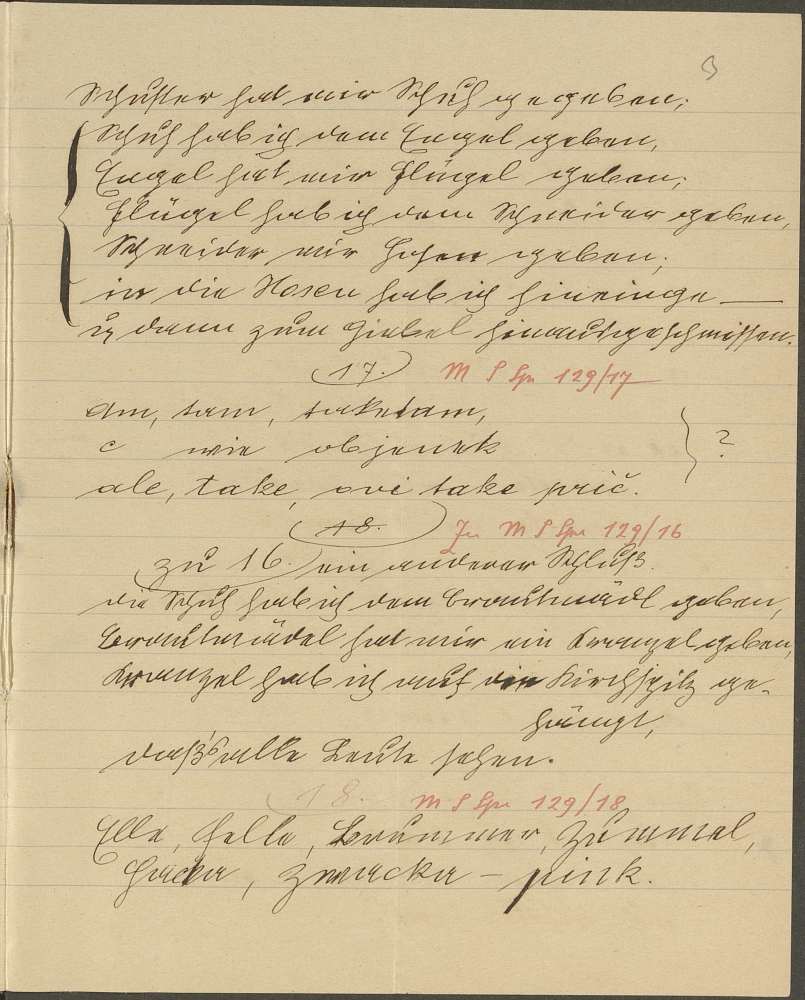 3
Schuster hat mir Schuh gegeben;
Schuh hab ich dem Engel geben,
Engel hat mir Flügel geben;
Flügel hab ich dem Schneider geben,
Schneider mir Hosen geben;
in die Hosen hab ich hineinge —
u dann zum Giebel hinausgeschmissen.
17. M S Spr 129/17
Am, tam, taketam,
c wie objenek
ale, take, ovi take prič. ?
18. Zu M S Spr 129/16
zu 16. ein anderer Schluß.
die Schuh hab ich dem Brautmädl geben,
Brautmädel hat mir ein Kranzel geben,
Kranzel hab ich auf die Kirchspitz ge-
hängt,
daß's alle Leute sehen.
18. M S Spr 129/18
Elle, Felle, Brummer, Zummel,
Hacka, Zwacka – pink.